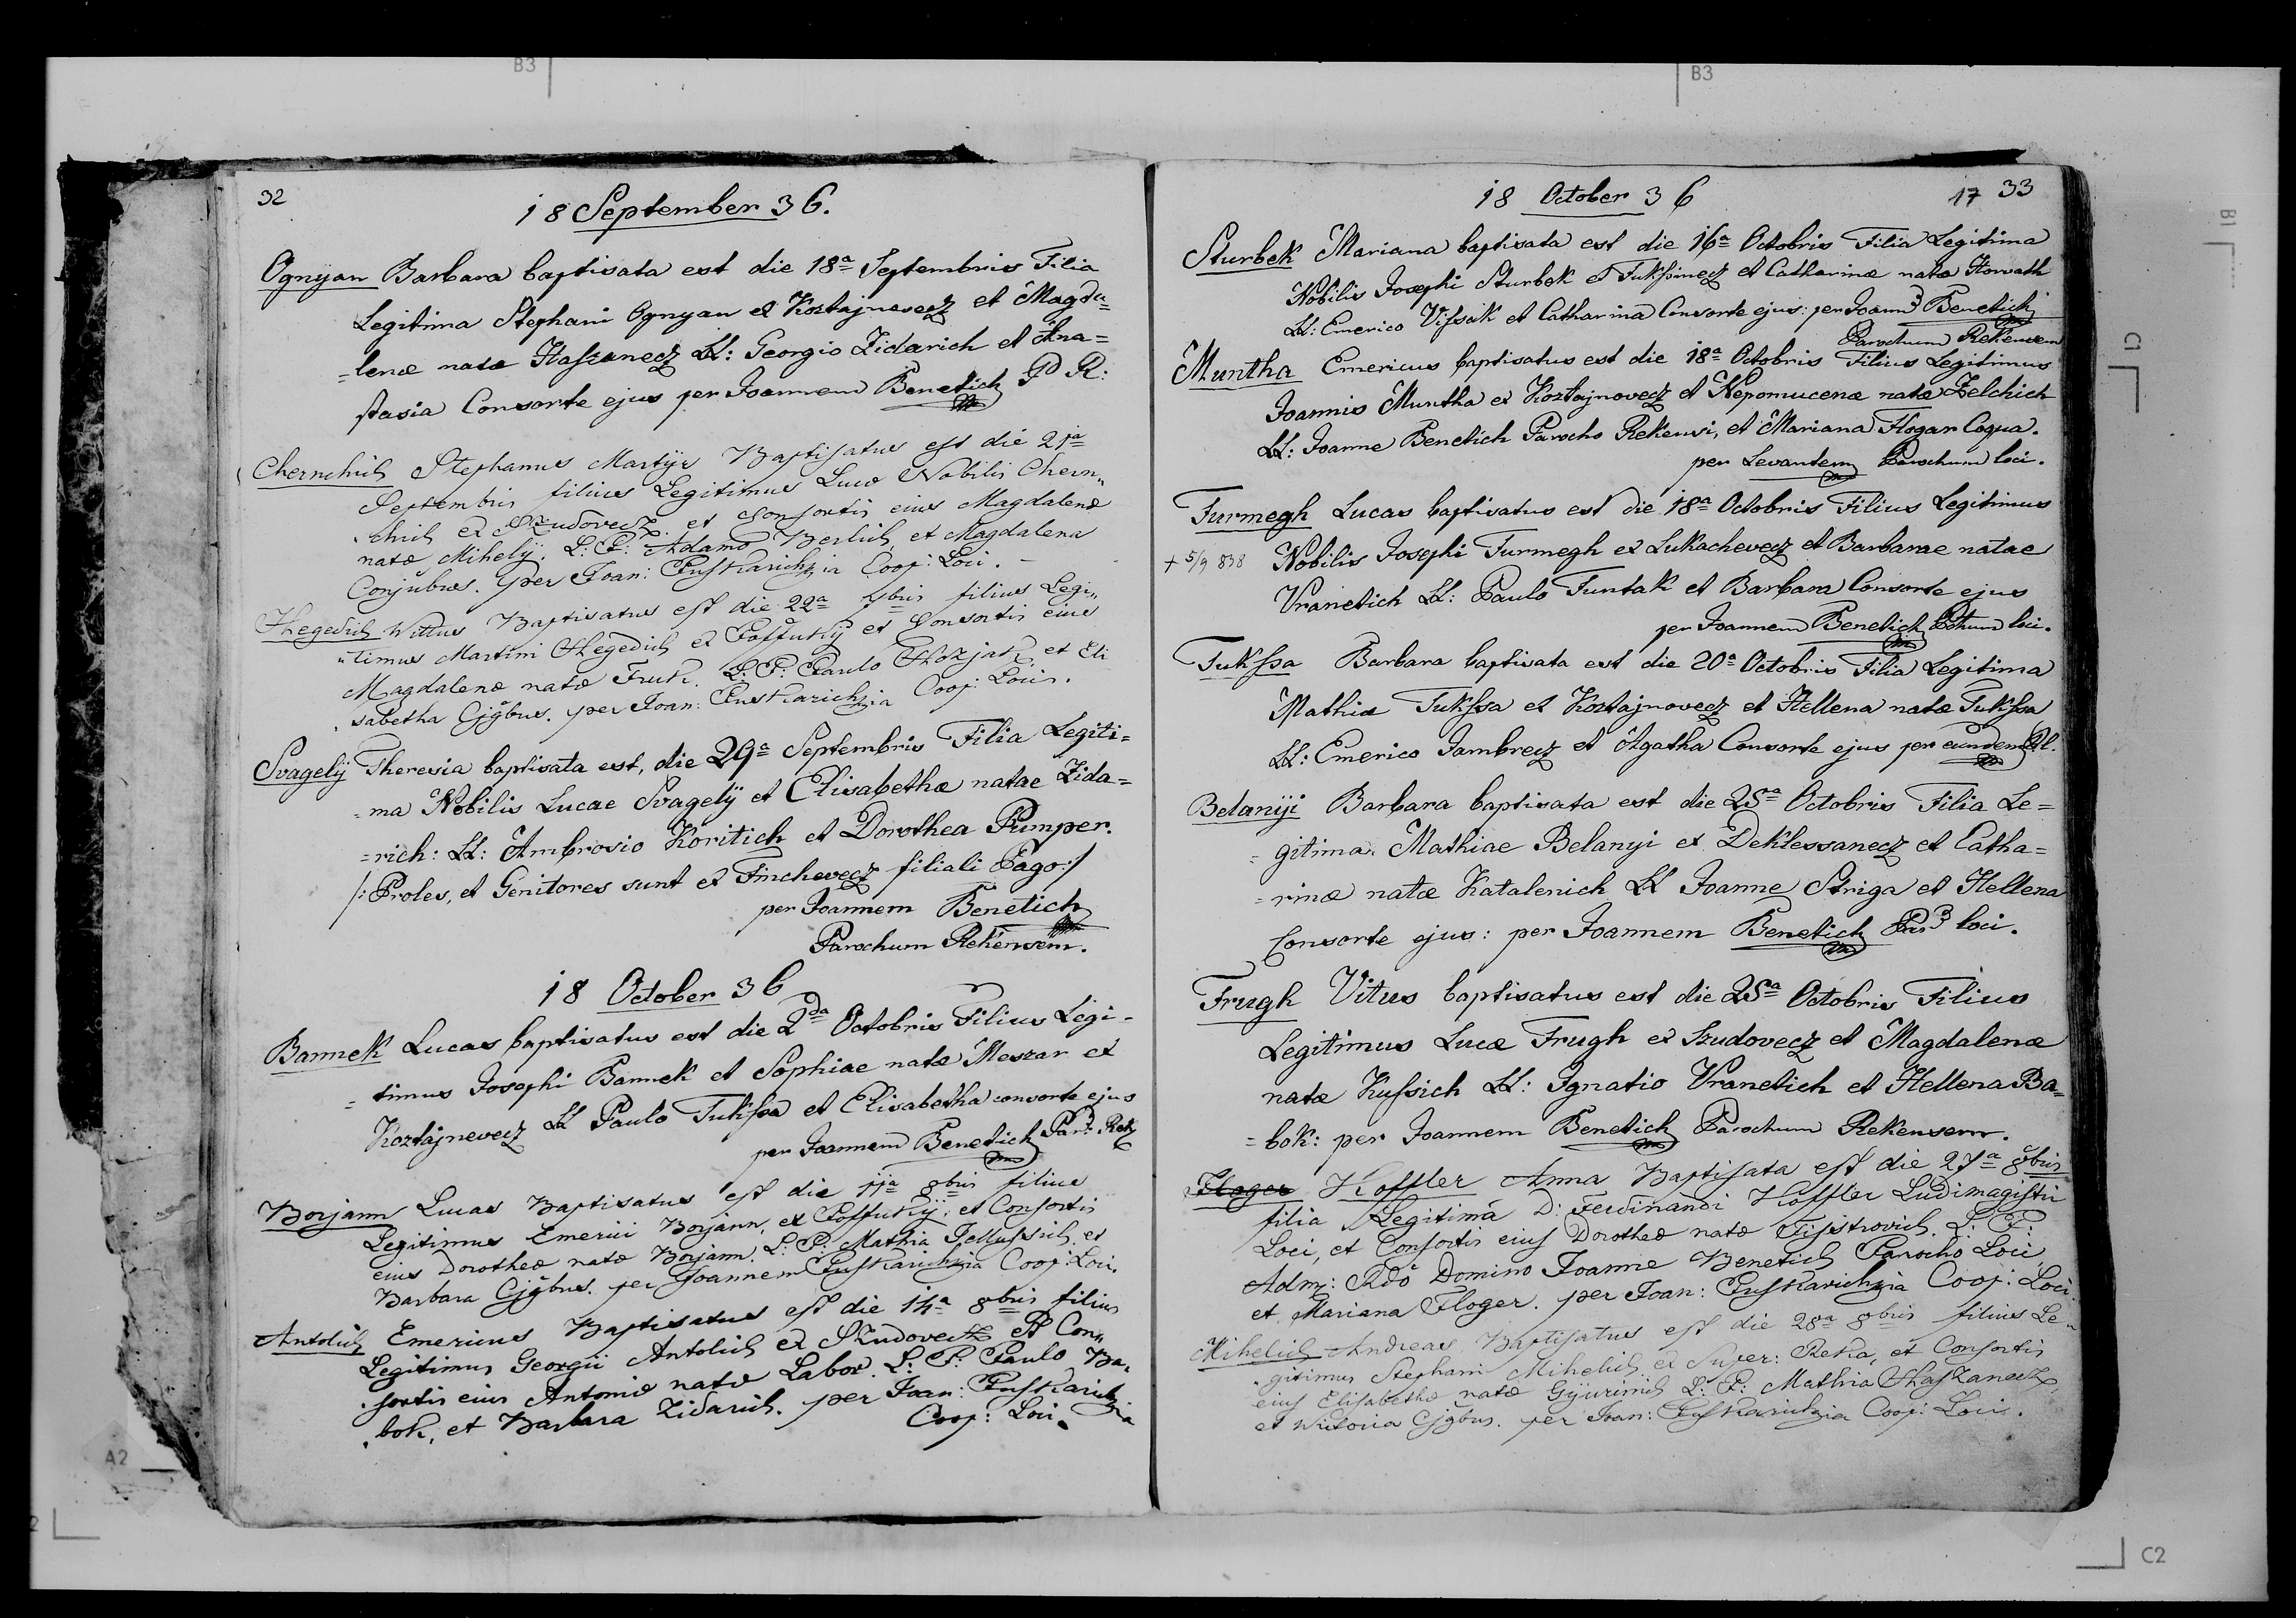 32
18 September 36.
Ognyan Barbara baptisata est die 18a Septembris Filia
Legitima Stephani Ognyan ex Koztajnevecz et Magda=
=lenæ natæ Haszanecz LL: Georgio Zidarich et Ana=
stasia Consorte ejus per Joannem Benetich P R:
Chernchich Stephanus Martijr Baptisatus est die 21ja
Septembris filius Legitimus Lucæ Nobilis Chern„
chich ex Szudovecz et Consortis eius Magdalenæ
natæ Mihelÿ. L: P: Adamo Berlich et Magdalena
Conjubus. per Joan: Puskarich Coop: Loci.
Hegedich Wittus Baptisatus est die 22a 7bris filius Legi„
„timus Martini Hegedich ex et Consortis eius
Magdalenæ natæ Fruk. L: P: Paulo Hozjak et Eli
sabetha Cjgbus. per Joan: Puskarich Coop: Loci.
Svagelÿ Theresia baptisata est, die 29a Septembris Filia Legiti=
=ma Nobilis Lucae Svagelÿ et Elisabethæ natae Zida=
=rich: LL: Ambrosio Koritich et Dorothea Pumper.
/: Proles, et Genitores sunt ex Finchevecz filiali Pago :/
per Joannem Benetich
Parochum Rekensem.
18 October 36
Bannek Lucas baptisatus est die 2da Octobris Filius Legi-
=timus Josephi Bannek et Sophiae natæ Meszar ex
Koztajnevecz LL Paulo Tukssa et Elisabetha consorte ejus
per Joannem Benetich Par: Rek
Borjann Lucas Baptisatus est die 11ja 8bris filius
Legitimus Emerici Borjann, ex et Consortis
eius Dorotheæ natæ Borjann. L: P: Mathia et
Barbara Cjgbus. per Joannem Puskarich Coop: Loci.
Antolich Emericus Baptisatus est die 14a 8bris filius
Legitimus Georgii Antolich ex Szudovecz et Con„
sortis eius Antoniæ natæ Labor. L: P: Paulo Ba„
bok, et Barbara Zidarich. per Joan: Puskarich
Coop: Loci.
18 October 36
17 33
Sturbek Mariana baptisata est die 16a Octobris Filia Legitima
Nobilis Josephi Sturbek et Catharinæ natæ Horvath
LL: Emerico Vissak et Catharina Consorte ejus: per Joann Benetich
Parochum Rekensem
Muntha Emericus baptisatus est die 18a Octobris Filius Legitimus
Joannis Muntha ex Koztajnovecz et Nepomucenæ natæ Zelchich
LL: Joanne Benetich Parocho Rekensi, et Mariana Flogar Coqua.
per Levantem Parochum loci.
Furmegh Lucas baptisatus est die 18a Octobris Filius Legitimus
+ 5/9 838 Nobilis Josephi Furmegh ex Lukachevecz et Barbarae natae
Vranetich LL: Paulo Funtak et Barbara Consorte ejus
per Joannem Benetich loci.
Tukssa Barbara baptisata est die 20a Octobris Filia Legitima
Mathiæ Tukssa ex Koztajnovecz et Hellena natæ Tukssa
LL: Emerico Jambrecz et Agatha Consorte ejus per eundem Pl.
Belanyi Barbara baptisata est die 25a Octobris Filia Le=
=gitima Mathiae Belanyi ex Deklessanecz et Catha=
=rinæ natæ Katalenich LL Joanne Striga et Hellena
Consorte ejus: per Joannem Benetich Par loci.
Frugh Vitus baptisatus est die 25a Octobris Filius
Legitimus Lucæ Frugh ex Szudovecz et Magdalenæ
natæ Kussich LL: Ignatio Vranetich et Hellena Ba=
=bok: per Joannem Benetich Parochum Rekensem.
Floger Koffler Anna Baptisata est die 27a 8bris
filia Legitima D: Ferdinandi Koffler Ludimagistri
Loci, et Consortis eius Dorotheæ natæ L: P:
Adm: Rdo Domino Joanne Benetich Parocho Loci
et Mariana Floger. per Joan: Puskarich Coop: Loci.
Mihelich Andreas Baptisatus est die 28a 8bris filius Le„
„gitimus Stephani Mihelich ex Super: Reka, et Consortis
eius Elisabethæ natæ Gijurinich L: P: Mathia Haszanecz
et Cjgbus. per Joan: Puskarich Coop: Loci.
B3
B3
B1
C1
A2
C2